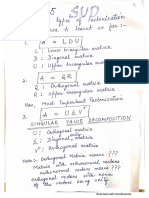 5 SVD
types of Factorization
learnt so far :-
1. A = LDU
L : Lower triangular matrix
D : Diagonal matrix
U : Upper triangular matrix
2. A = QR
Q : Orthogonal matrix
R : Upper triangular matrix
Now, Most Important Factorization
A = UΣV^T
SINGULAR VALUE DECOMPOSITION
U : Orthogonal matrix
Σ : Diagonal matrix
V : Orthogonal matrix
Note :- Orthogonal Matrix means ???
Matrix with orthonormal vectors
orthonormal vectors means ???
orthogonal vectors with norm of
the vectors being unity